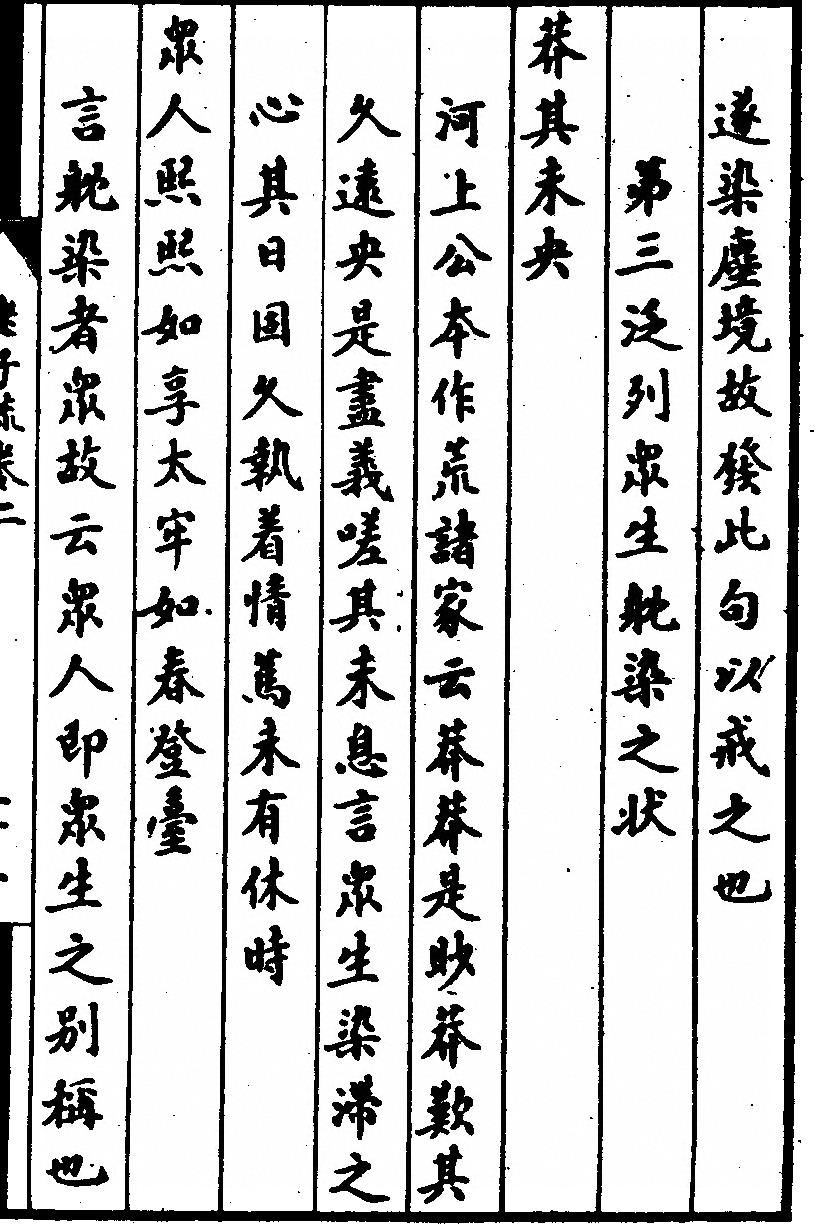 遂染塵境故發此句以戒之也
第三泛列眾生躭染之状
莽其未央
河上公本作荒諸家云莽莽是眇莽歎其
久遠央是盡義嗟其未息言眾生染滯之
心其日固久執着情篤未有休時
眾人熙熙如享太牢如春登臺
言躭染者眾故云眾人即眾生之别稱也
老子疏卷二